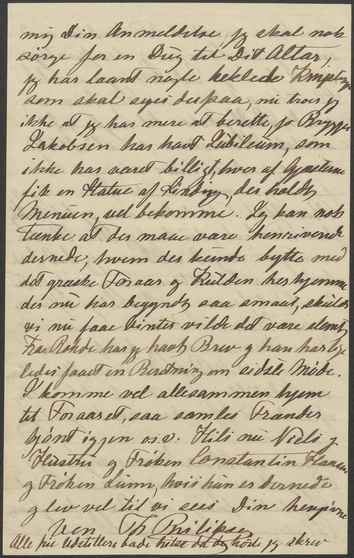 mig Din Anmeldelse, jeg skal nok
sørge for en Dug til Dit Altar,
jeg har laant nogle heklede
som skal syes derpaa, nu troer jeg
ikke at jeg har mere at berette, jo Brygger
Jakobsen har havt Jubileum, som
ikke har været billigt, hver af
fik en Statue af, der holdt
Menuen, vel bekomme. Jeg kan nok
tænke at der maa være henrivende
dernede, hvem der kunde bytte med
det græske Foraar og Kulden her hjemme
der nu har begyndt saa smaat, skulde
vi nu faae Vinter vilde det være slemt,
Fra Rohde har jeg havt Brev og han har
ledes faaet en Beretning om sidste Møde.
I komme vel allesammen hjem
til Foraaret, saa samles Frænder
kjønt igjen o.s.v. Hils nu Niels og
Hustru og Frøken Constantin Hansen
og Frøken Lunn, hvis hun er dernede
og lev vel til vi sees Din hengivne
Ven
Alle